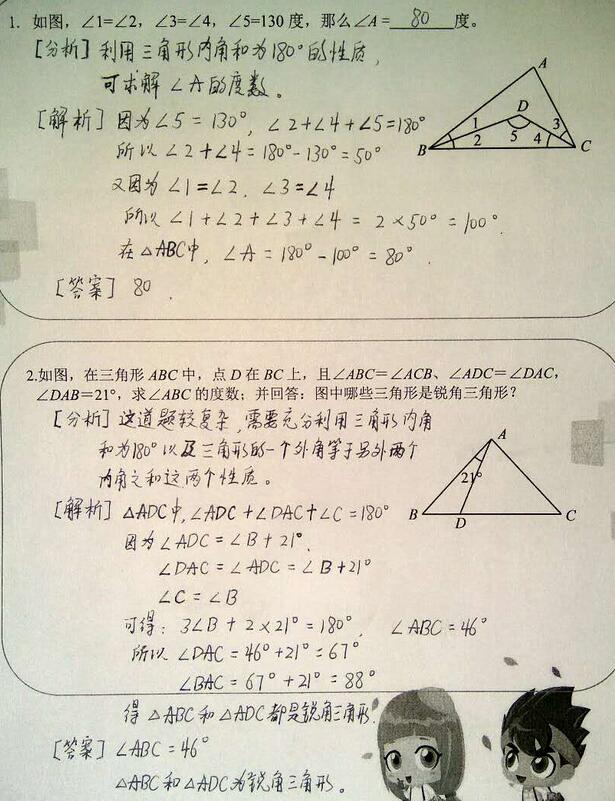 1. 如图，∠1=∠2，∠3=∠4，∠5=130 度，那么∠A = 80 度。
[分析] 利用三角形内角和为180°的性质，
可求解 ∠A的度数。
[解析] 因为∠5 = 130°, ∠2+∠4+∠5=180°
所以 ∠2+∠4=180°-130°=50°
又因为 ∠1=∠2、∠3=∠4
所以 ∠1+∠2+∠3+∠4 = 2×50° = 100°.
在△ABC中, ∠A = 180° - 100° = 80°.
[答案] 80.
A
D
1
3
2
5
4
B
C
2.如图，在三角形 ABC 中，点 D 在 BC 上，且∠ABC=∠ACB、∠ADC=∠DAC，
∠DAB=21°，求∠ABC 的度数；并回答：图中哪些三角形是锐角三角形？
[分析] 这道题较复杂，需要充分利用三角形内角
和为180°以及三角形的一个外角等于另外两个
内角之和这两个性质。
[解析] △ADC中,∠ADC+∠DAC+∠C=180°
因为∠ADC=∠B+21°.
∠DAC=∠ADC=∠B+21°
∠C=∠B
可得: 3∠B + 2×21°=180°, ∠ABC=46°
所以 ∠DAC = 46°+21°=67°
∠BAC = 67°+21°=88°
得 △ABC 和 △ADC 都是锐角三角形.
[答案] ∠ABC=46°
△ABC 和 △ADC 为锐角三角形。
A
21°
B
D
C